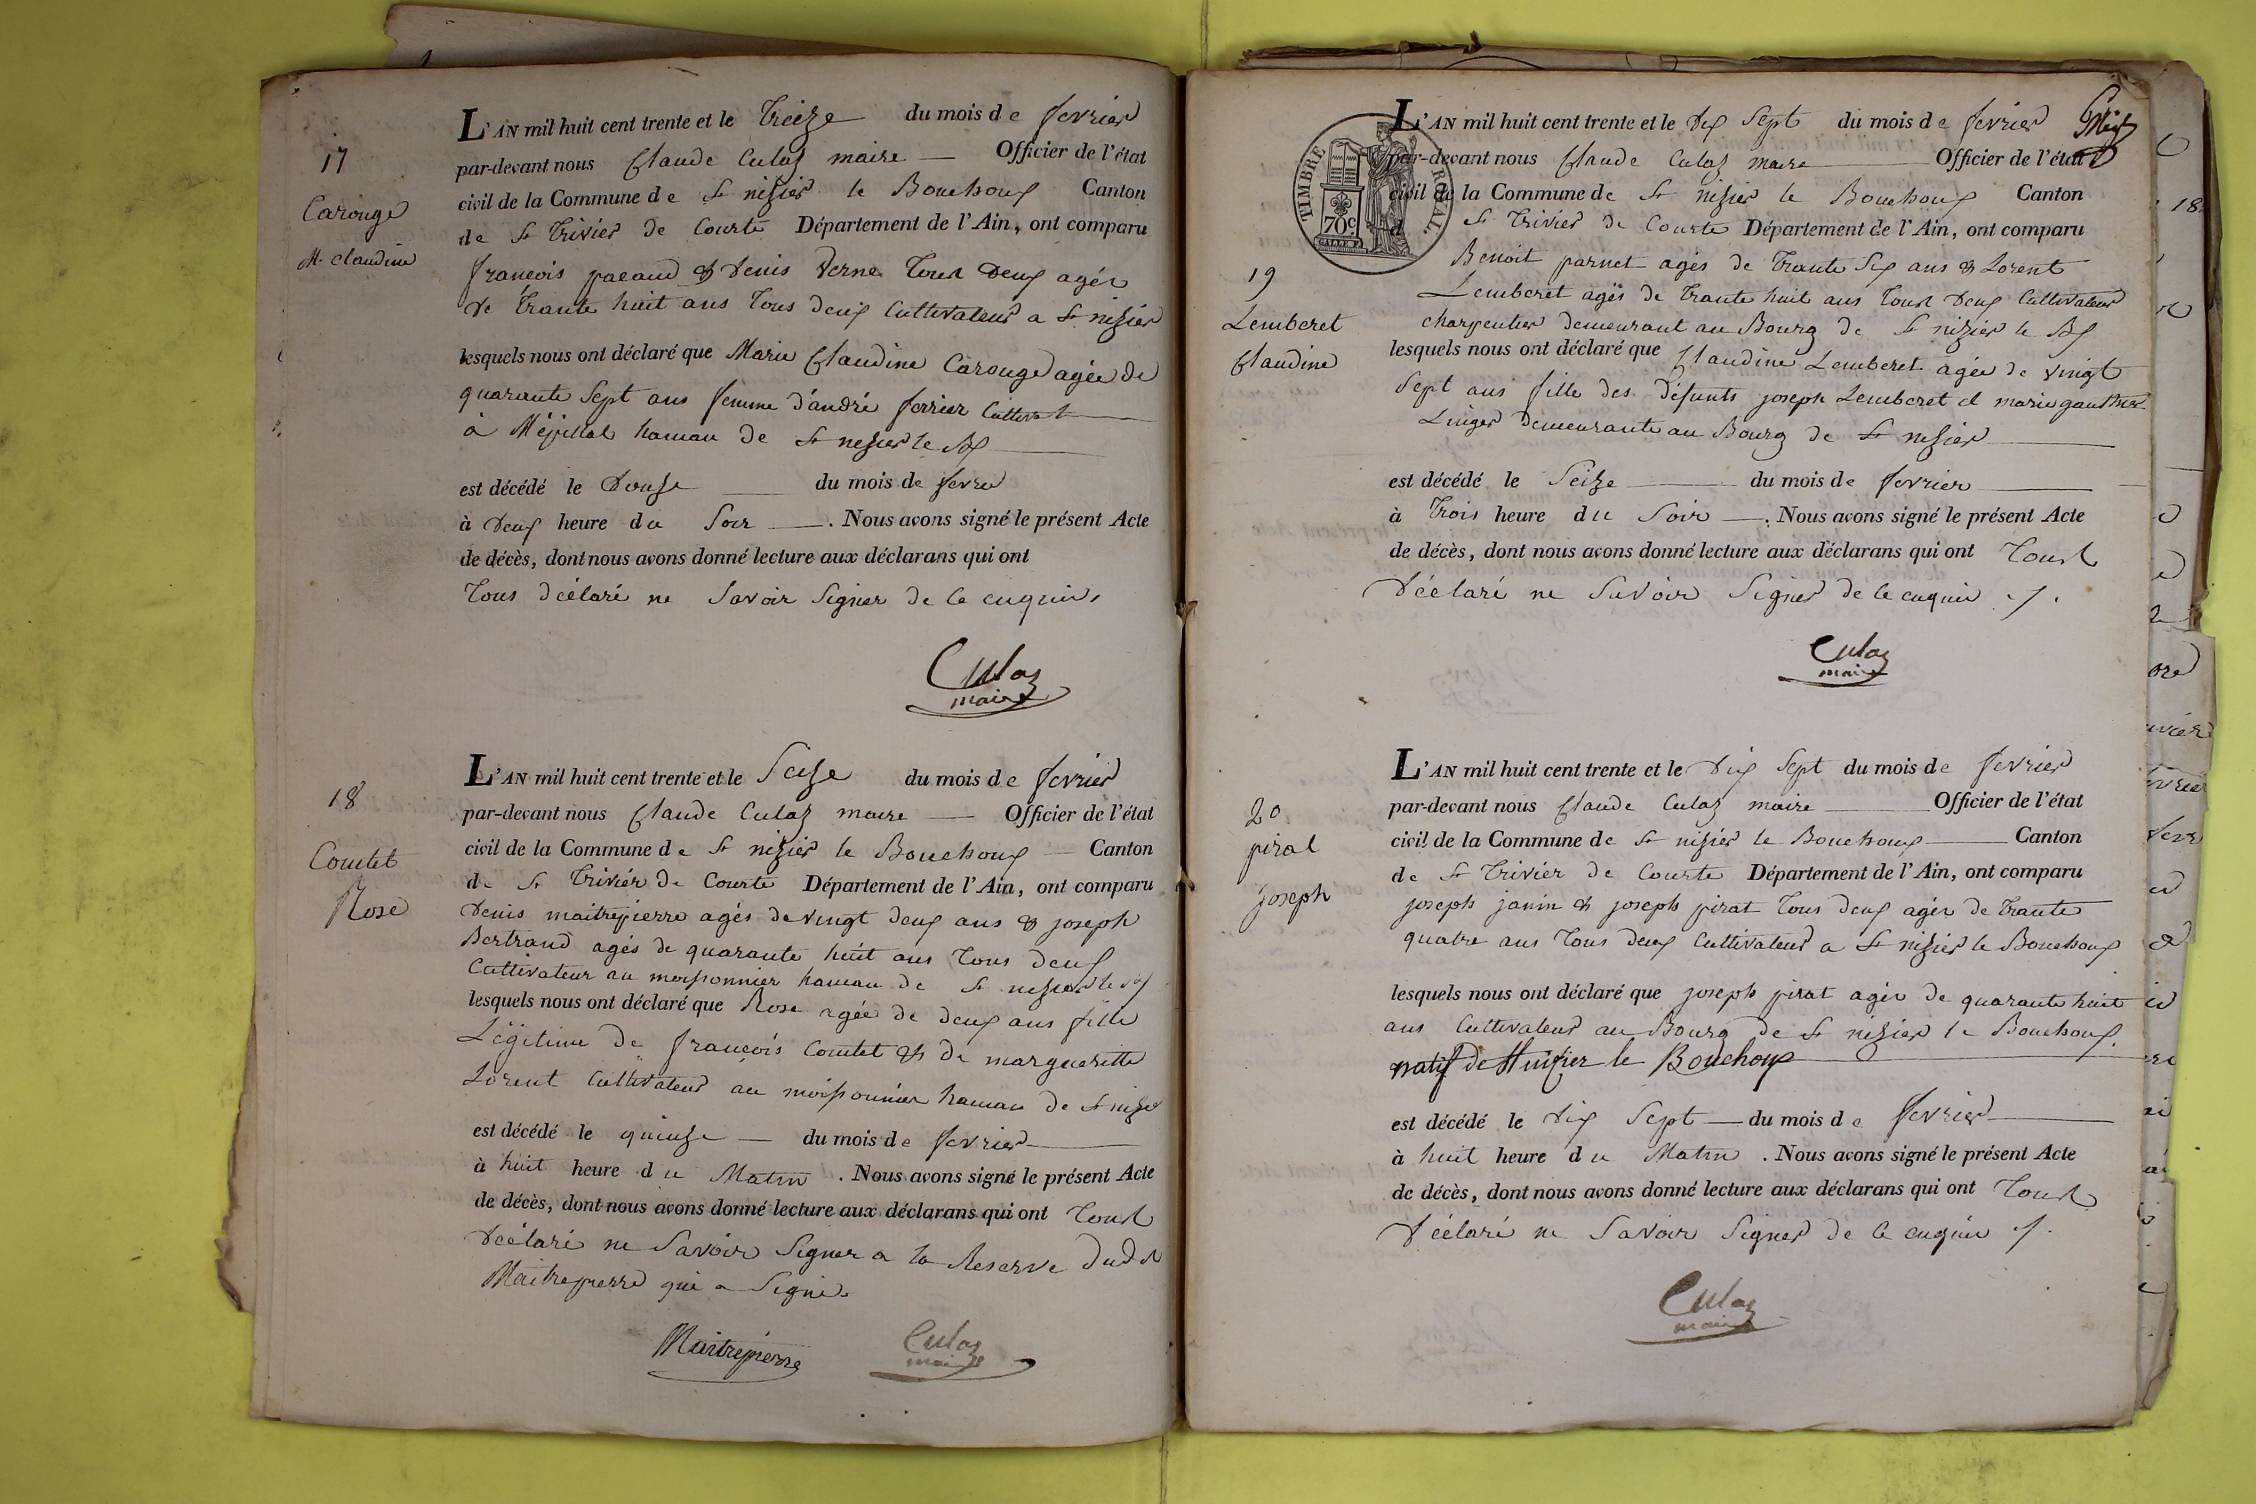 17
Carouge
M. Claudine
L'AN mil huit cent trente et le Treize du mois de fevrier
par-devant nous Claude Culaz maire — Officier de l'état
civil de la Commune de St nizier le Bouchoux Canton
de St Trivier de Courte Département de l'Ain, ont comparu
françois pacaud & Denis Verne Tous Deux agés
de Trante huit ans Tous deux Cultivateur a St nizier
lesquels nous ont déclaré que Marie Claudine Carouge agée de
quarante Sept ans femme d'andré ferrier Cultivat
à Mépillat hamau de St nezier le Bx
est décédé le Douze du mois de fevrie
à Deux heure du Soir —. Nous avons signé le présent Acte
de décès, dont nous avons donné lecture aux déclarans qui ont
Tous déclaré ne Savoir Signer de ce enquis,
Culaz
maire
18
Comtet
Rose
L'AN mil huit cent trente et le Seize du mois de fevrier
par-devant nous Claude Culaz maire — Officier de l'état
civil de la Commune de St nizier le Bouchoux — Canton
de St Trivier de Courte Département de l'Ain, ont comparu
Denis maitrepierre agés de vingt deux ans & joseph
Bertrand agés de quarante huit ans Tous deux
Cultivateur au moissonnier hamau de St nizier le Bx
lesquels nous ont déclaré que Rose agée de deux ans fille
Légitime de françois Comtet & de margueritte
Lorent Cultivateur au moissonnier hamau de St nizie
est décédé le quinze — du mois de fevrier
à huit heure du Matin . Nous avons signé le présent Acte
de décès, dont nous avons donné lecture aux déclarans qui ont Tous
Déclaré ne Savoir Signer a la Reserve dudt
Maitrepierre qui a Signé.
Maitrepierre
Culaz
maire
TIMBRE ROYAL.
70c.
L'AN mil huit cent trente et le Dix Sept du mois de fevrier
par-devant nous Claude Culaz maire Officier de l'état
civil de la Commune de St nizier le Bouchoux Canton
d St Trivier de Courte Département de l'Ain, ont comparu
19
Lemberet
Claudine
Benoit parnet agés de Trante Six ans & Lorent
Lemberet agés de Trante huit ans Tous Deux Cultivateur
charpentier demeurant au Bourg de St nizier le Bx
lesquels nous ont déclaré que Claudine Lemberet agée de vingt
Sept ans fille des Défunts joseph Lemberet et marie gauthier
Linger Demeurante au Bourg de St nesier
est décédé le Seize du mois de fevrier
à Trois heure du Soir —. Nous avons signé le présent Acte
de décès, dont nous avons donné lecture aux déclarans qui ont Tous
Déclaré ne Savoir Signer de ce enquis ./.
Culaz
maire
20
pirat
joseph
L'AN mil huit cent trente et le Dix Sept du mois de fevrier
par-devant nous Claude Culaz maire Officier de l'état
civil de la Commune de St nizier le Bouchoux Canton
de St Trivier de Courte Département de l'Ain, ont comparu
joseph janin & joseph pirat Tous deux agés de Trante
quatre ans Tous deux Cultivateur a St nizier le Bouchoux
lesquels nous ont déclaré que joseph pirat agés de quarante huit
ans Cultivateur au Bourg de St nizier le Bouchoux.
natif de St nizier le Bouchoux
est décédé le Dix Sept — du mois de fevrier
à huit heure du Matin . Nous avons signé le présent Acte
de décès, dont nous avons donné lecture aux déclarans qui ont Tous
Déclaré ne Savoir Signer de ce enquis /.
Culaz
maire